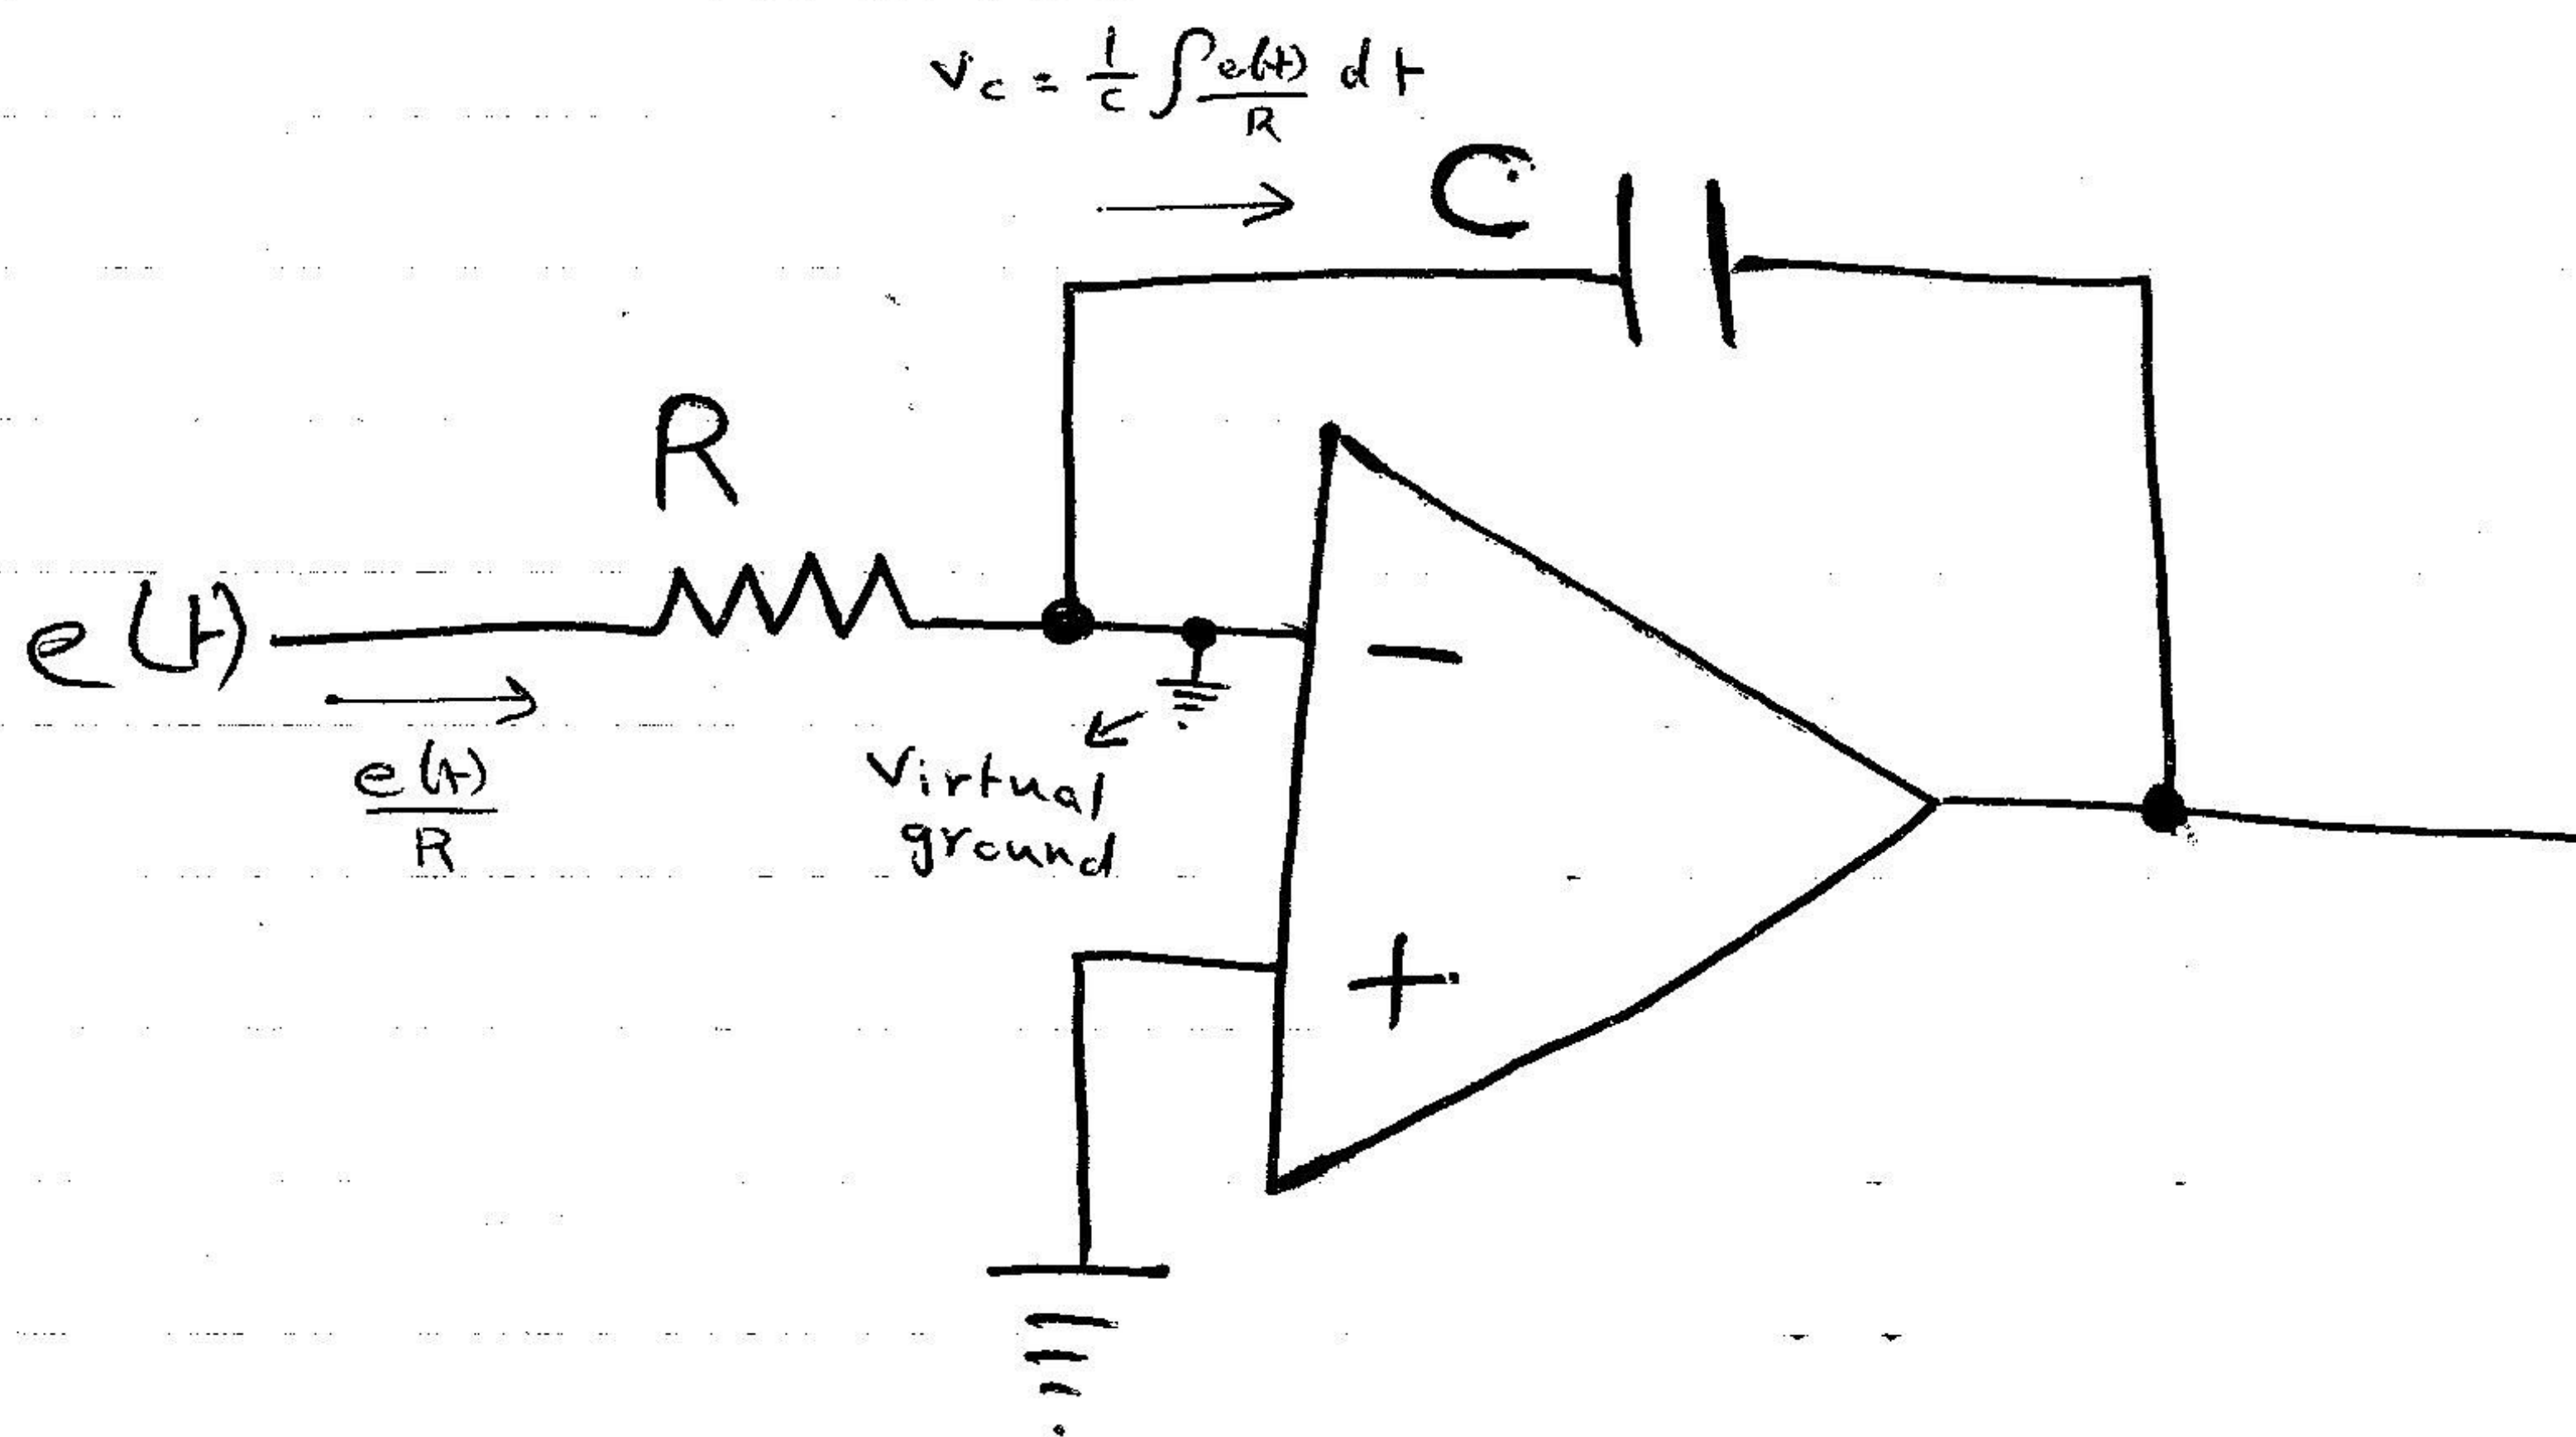 v_c = 1/c ∫ e(t)/R dt
C
R
e(t)
e(t)/R
Virtual
ground
−
+